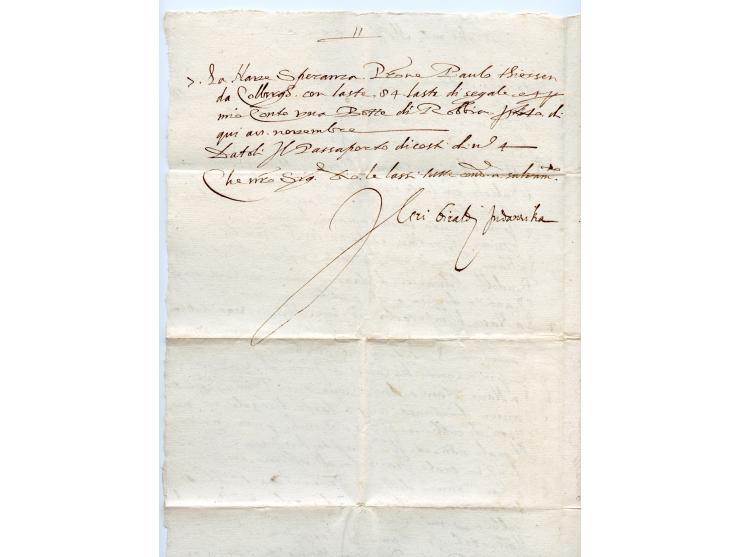 11
7. La Nave Speranza Prone Paulo Thiessen
da Colbergo con laste 84 laste di segale e
mio Conto una Botte di Robbia di
qui a n. novembre
Datoli Il Passaporto di costi di n.º 4
Che nro Sigr. Dio le lassi tutte condur a salvamto.
Neri Giraldj